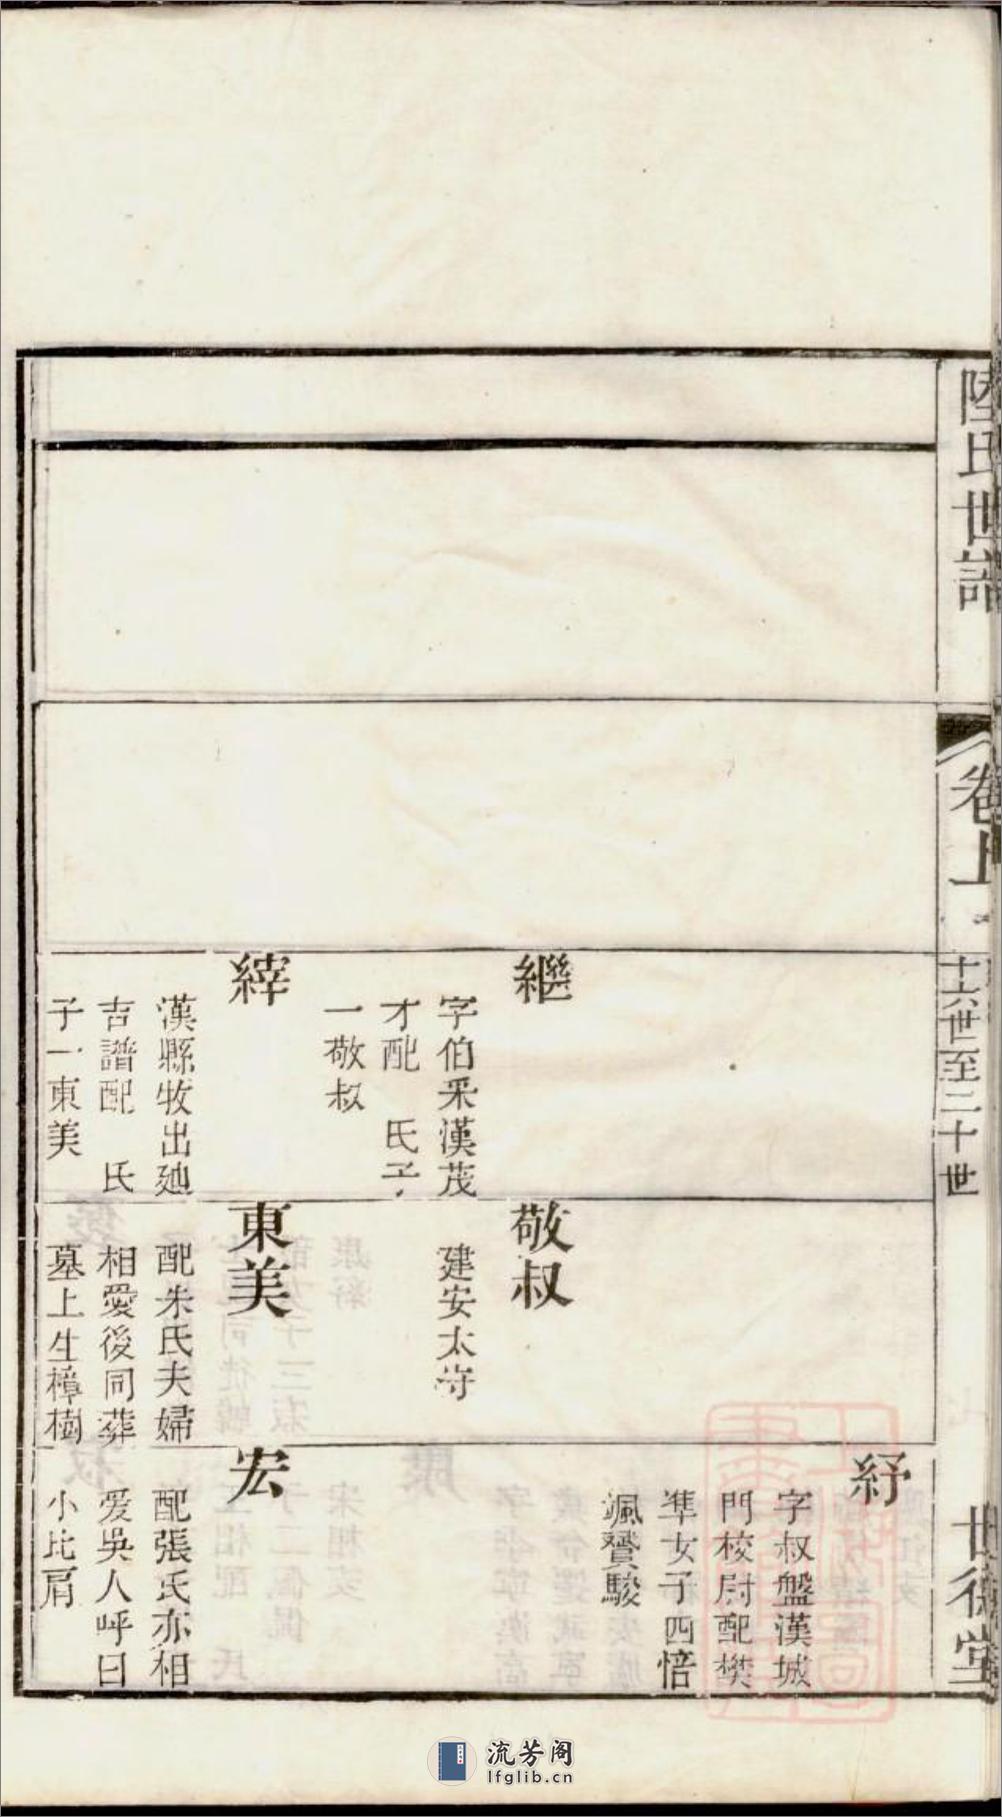 陸氏世譜
卷上
十六世至二十世
世德堂
繼
字伯釆漢茂
才配 氏子
一敬叔
縡
漢縣牧出廸
吉譜配 氏
子一東美
敬叔
建安太守
東美
配朱氏夫婦
相愛後同葬
墓上生樟樹
紓
字叔盤漢城
門校尉配樊
準女子四愔
颯贇駿
宏
配張氏亦相
愛吳人呼曰
小比肩
流芳阁
lfglib.cn